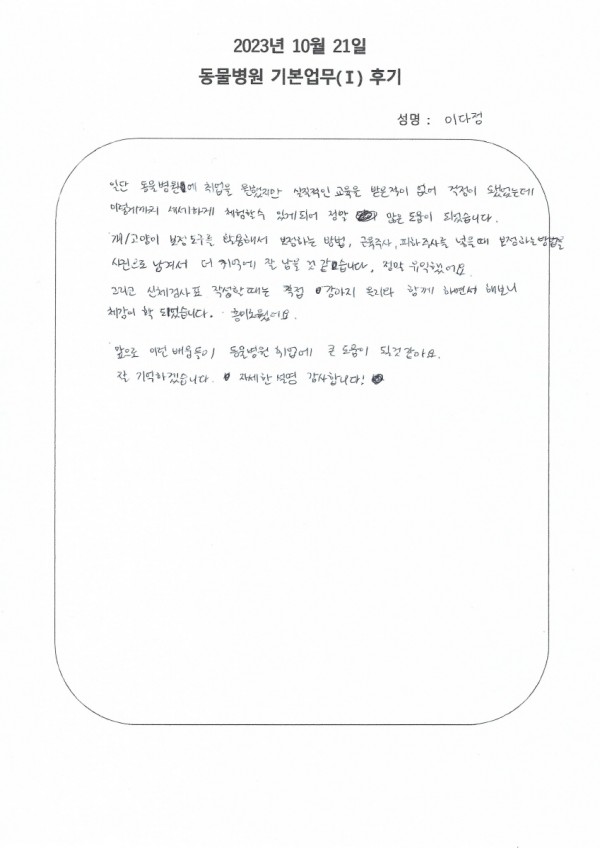 2023년 10월 21일
동물병원 기본업무(Ⅰ) 후기
성명 : 이다정
일단 동물병원에 취업을 원했지만 실질적인 교육을 받은적이 없어 걱정이 됐었는데
이렇게까지 세세하게 체험할수 있게되어 정말 많은 도움이 되었습니다.
개/고양이 보정도구를 활용해서 보정하는 방법, 근육주사, 피하주사를 넣을때 보정하는방법을
사진으로 남겨서 더 기억에 잘 남을 것 같습니다, 정말 유익했어요.
그리고 신체검사표 작성할때는 직접 강아지 몬지랑 함께 하면서 해보니
체감이 확 되었습니다. 흥미로웠어요.
앞으로 이런 배움들이 동물병원 취업에 큰 도움이 될것같아요.
잘 기억하겠습니다. 자세한 설명 감사합니다!